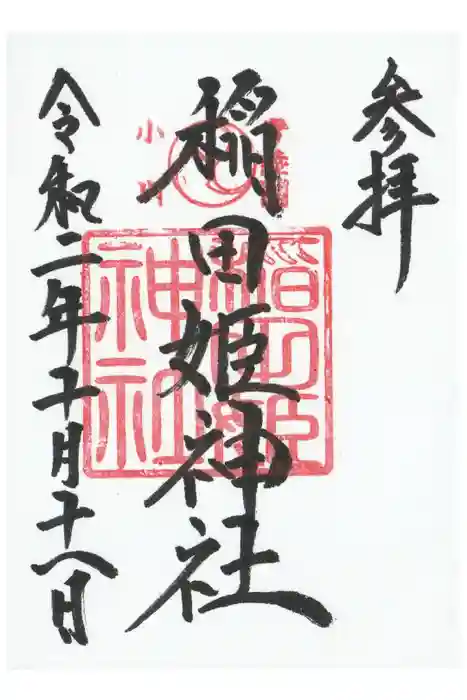 参拝
稲田姫神社
稲田姫神社
小川
令和二年十月十八日